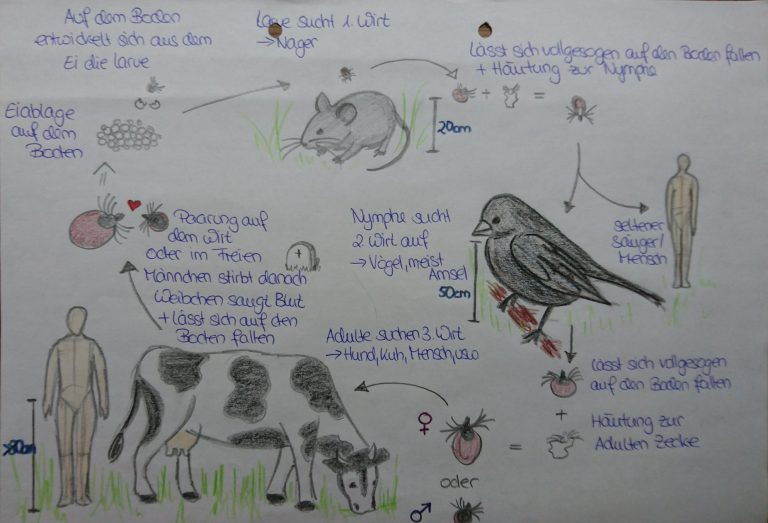 Auf dem Boden
entwickelt sich aus dem
Ei die larve
larve sucht 1. Wirt
→ Nager
lässt sich vollgesogen auf den Boden fallen
+ Häutung zur Nymphe
+ =
20cm
Eiablage
auf dem
Boden
seltener
Säuger/
Mensch
Nymphe sucht
2 Wirt auf
→ Vögel, meist
Amsel
50cm
Paarung auf
dem Wirt
oder im Freien
Männchen stirbt danach
Weibchen saugt Blut
+ lässt sich auf den
Boden fallen
+
Adulte suchen 3. Wirt
→ Hund, Kuh, Mensch, usw
lässt sich vollgesogen
auf den Boden fallen
+
Häutung zur
Adulten Zecke
♀
=
oder
♂
>80cm